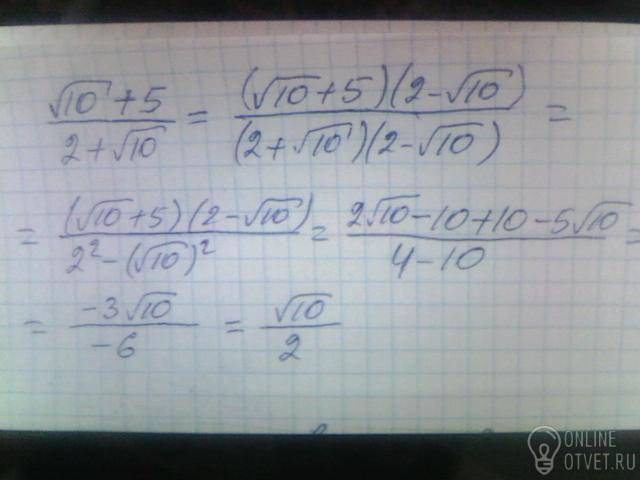 (√10 + 5)/(2 + √10) = ((√10 + 5)(2 - √10))/((2 + √10)(2 - √10)) =
= ((√10 + 5)(2 - √10))/(2² - (√10)²) = (2√10 - 10 + 10 - 5√10)/(4 - 10) =
= (-3√10)/(-6) = √10/2
ONLINE
OTVET.RU